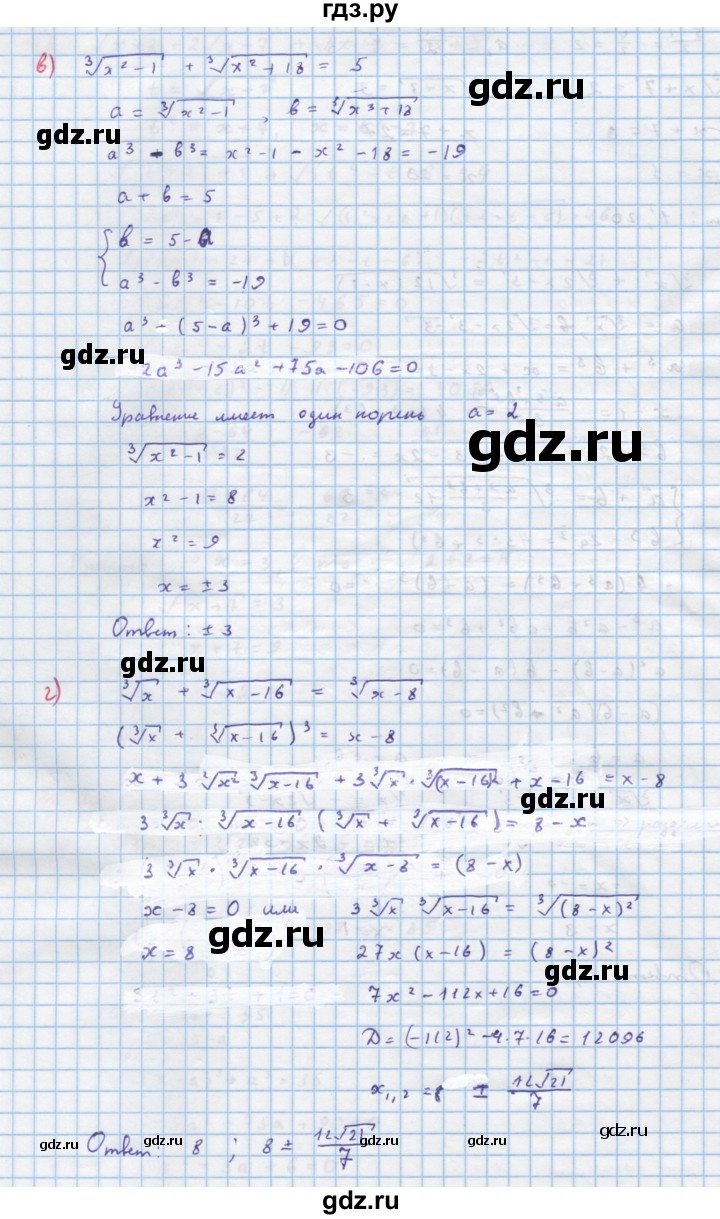 гдз.ру
в) ∛(x² − 1) + ∛(x² + 18) = 5
a = ∛(x² − 1) , b = ∛(x³ + 18)
gdz.ru
a³ − b³ = x² − 1 − x² − 18 = −19
a + b = 5
{ b = 5 − a
a³ − b³ = −19
a³ − (5 − a)³ + 19 = 0
gdz.ru
2a³ − 15a² + 75a − 106 = 0
Уравнение имеет один корень a = 2
∛(x² − 1) = 2
gdz.ru
x² − 1 = 8
x² = 9
x = ± 3
Ответ: ± 3
gdz.ru
г) ∛x + ∛(x − 16) = ∛(x − 8)
(∛x + ∛(x − 16))³ = x − 8
x + 3 ∛x² ∛(x − 16) + 3 ∛x · ∛(x − 16)² + x − 16 = x − 8
gdz.ru
3 ∛x · ∛(x − 16) (∛x + ∛(x − 16)) = 8 − x
3 ∛x · ∛(x − 16) · ∛(x − 8) = (8 − x)
x − 8 = 0 или 3 ∛x ∛(x − 16) = ∛((8 − x)²)
gdz.ru
x = 8 27x (x − 16) = (8 − x)²
gdz.ru
7x² − 112x + 16 = 0
D = (−112)² − 4·7·16 = 12096
x₁,₂ = 8 ± 12√21/7
Ответ: 8 ; 8 ± 12√21/7
gdz.ru gdz.ru gdz.ru gdz.ru gdz.ru
gdz.ru